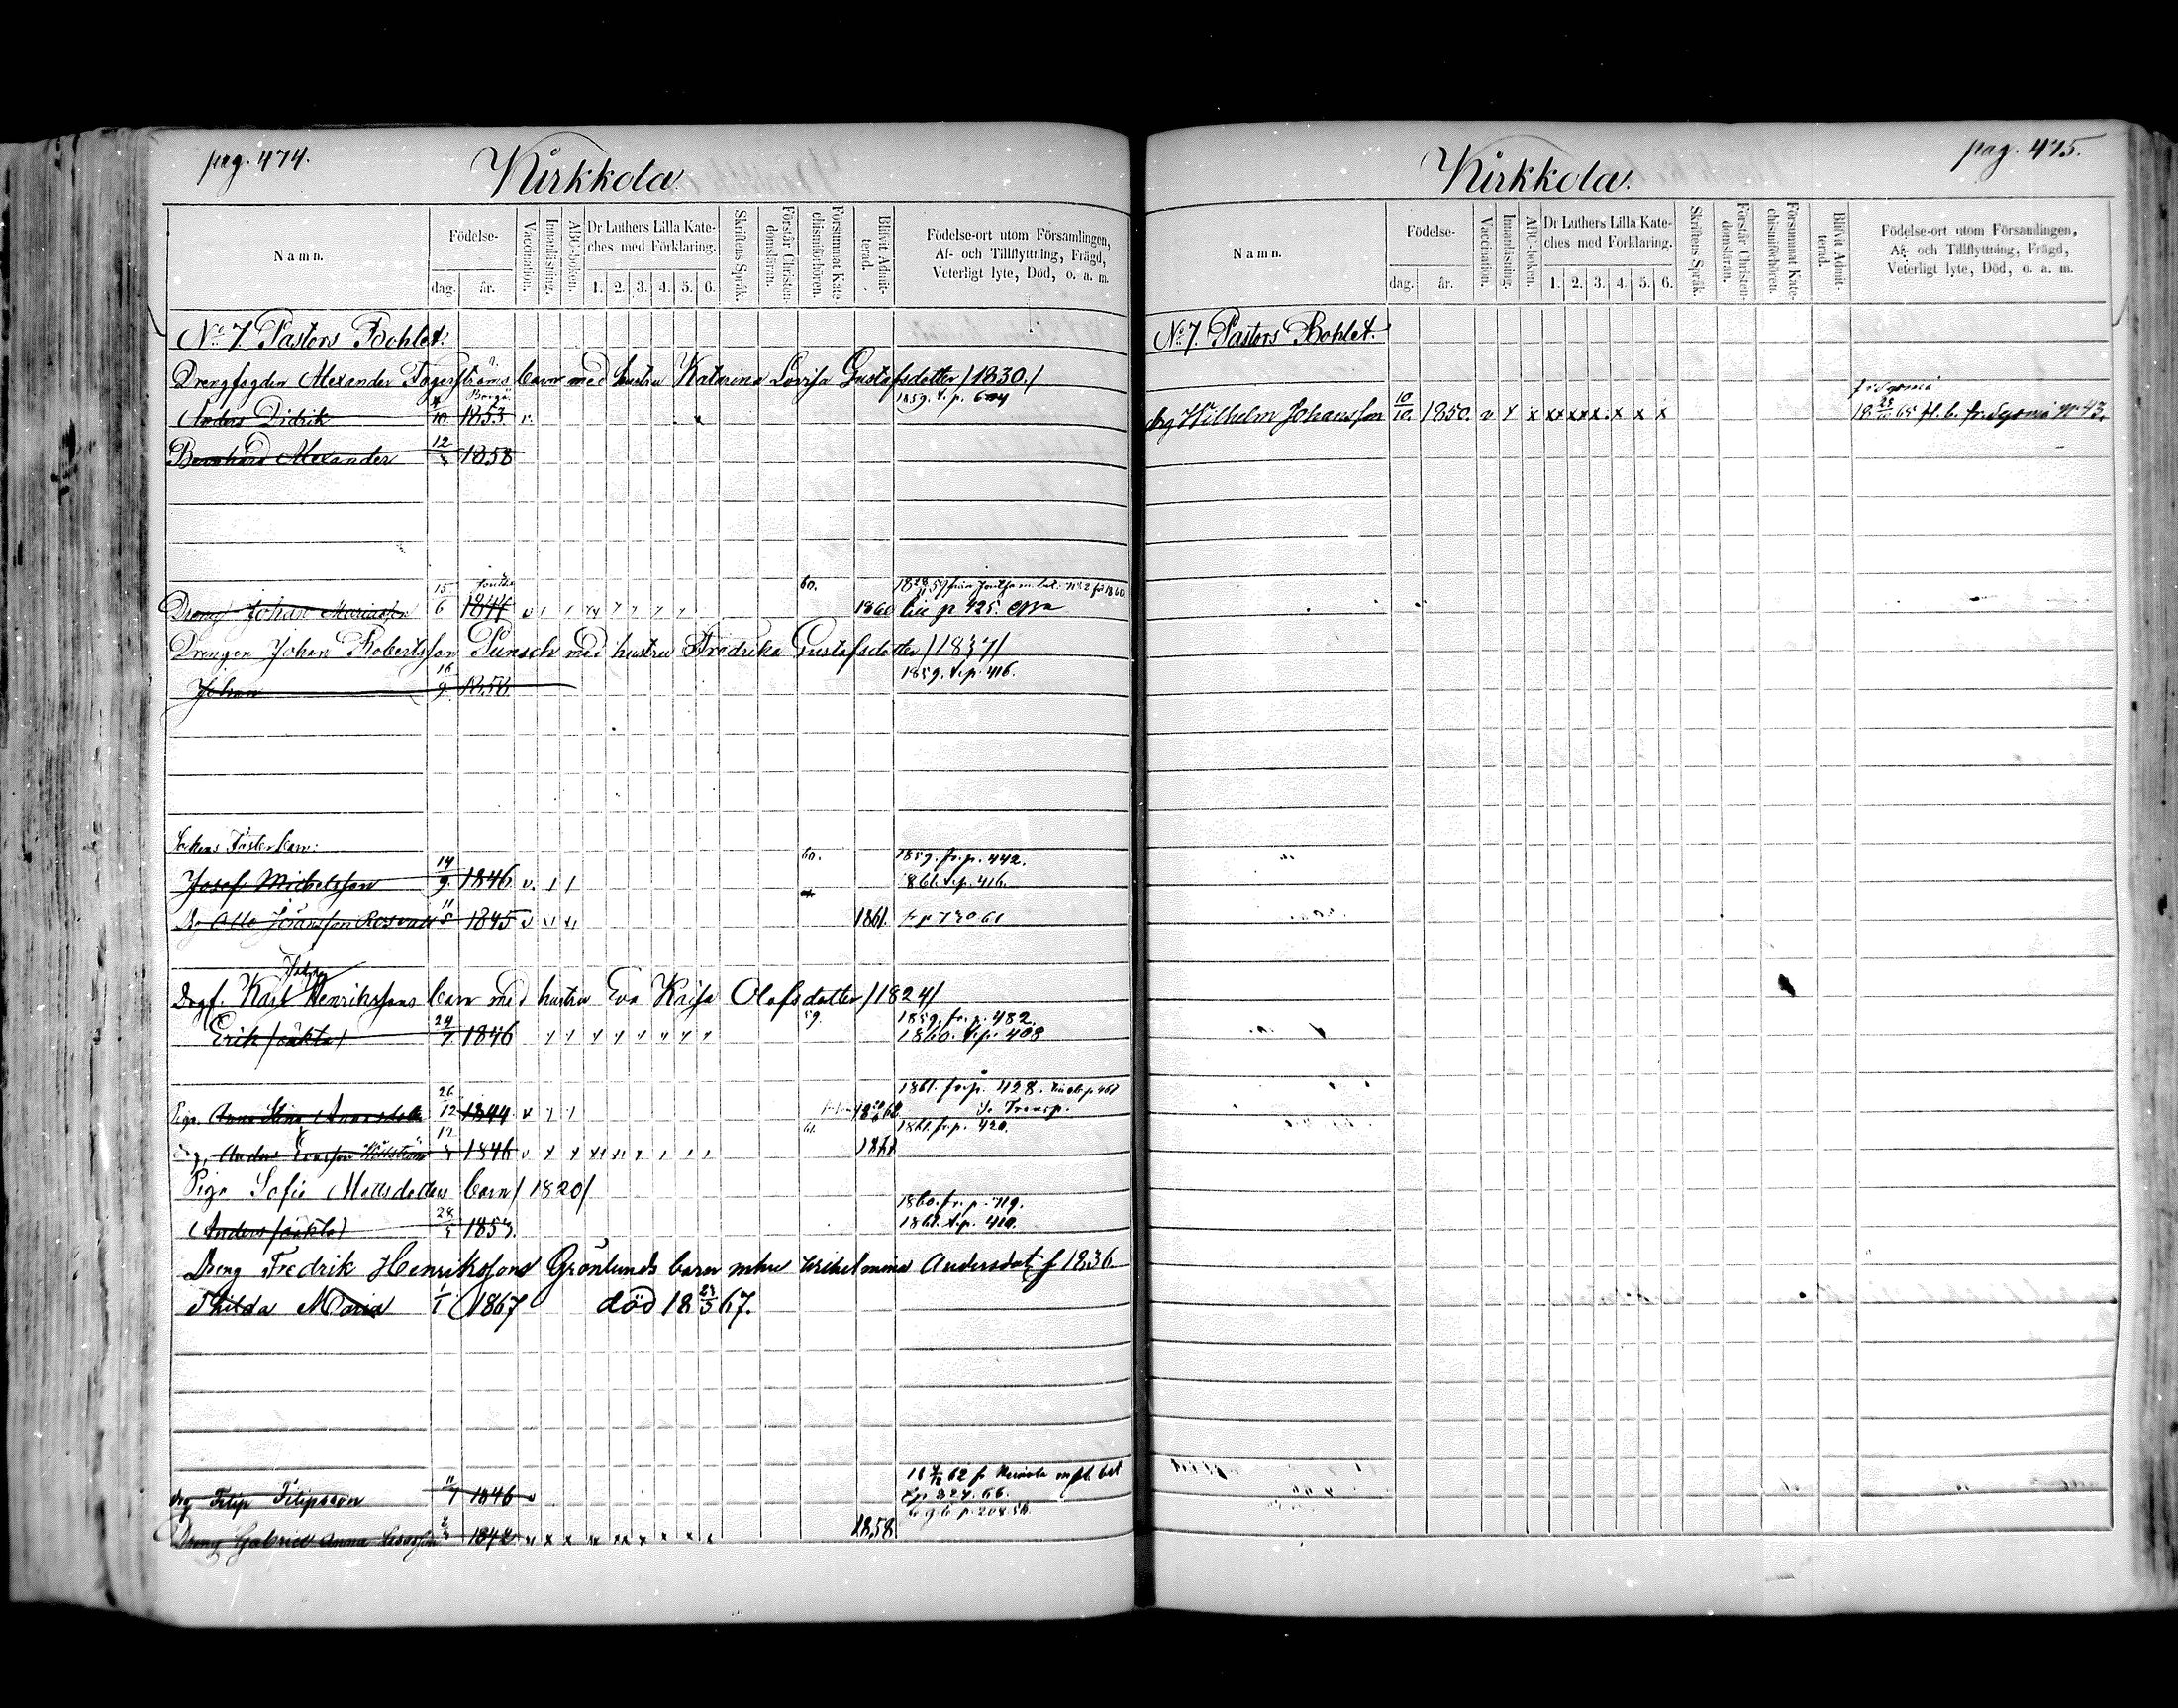 pag. 474.
Kirkkola.
Namn.
Födelse-
dag.
år.
Vaccination.
Innanläsning.
ABC-boken.
Dr Luthers Lilla Kate-
ches med Förklaring.
1. 2. 3. 4. 5. 6.
Skriftens Språk.
Förstår Christen-
domsläran.
Försummat Kate-
chismiförhören.
Blifvit Admit-
terad.
Födelse-ort utom Församlingen,
Af- och Tillflyttning, Frägd,
Veterligt lyte, Död, o. a. m.
No 7. Pastors Bohlet.
Drengfogden Alexander Fagerströms barn med hustru Katarina Lovisa Gustafsdotter /1830./
Anders Didrik 10 Borgå 1853. v. x 1859. t. p.
Bernhard Alexander 12 1858
Dreng Johan 15/6 1844 60. 1860 p 425.
Drengen Johan Robertsson Punsch med hustru Fredrika Gustafsdotter /1837/
Johan 16/9 1856. 1859. t. p. 416.
Sockens Fosterbarn:
Josef Michelsson 14/9 1846 v. 60. 1859. fr. p. 442.
1861. t. p. 416.
Dr Otto 11 1845 v 1861.
Johan
Dagf. Karl Henrikssons barn med hustru Eva Kaisa Olofsdotter /1824/
Erik /oäkta/ 24/7 1846 59. 1859. fr. p. 482.
1860. t. p. 408
Piga Anna Stina 26/12 1844 v 1861. fr. p. 428.
Transp.
Anders 17 1846 v x x 61. 1861 1861. fr. p. 420.
Piga Sofia Mattsdotters barn /1820/
Anders /oäkta/ 28 1853. 1860. fr. p. 419.
1861. t. p. 420.
Dreng Fredrik Henrikssons Grönlunds barn mhu Wilhelmina Andersdot f 1836
Thilda Maria 1/1 1867 död 18 23/3 67.
drg Filip Filipsson 11/7 1846 v
p 327. 66.
Dreng Gabriel Anna 1842 v x x 1858
pag. 475.
Kirkkola.
Namn.
Födelse-
dag.
år.
Vaccination.
Innanläsning.
ABC-boken.
Dr Luthers Lilla Kate-
ches med Förklaring.
1. 2. 3. 4. 5. 6.
Skriftens Språk.
Förstår Christen-
domsläran.
Försummat Kate-
chismiförhören.
Blifvit Admit-
terad.
Födelse-ort utom Församlingen,
Af- och Tillflyttning, Frägd,
Veterligt lyte, Död, o. a. m.
No 7. Pastors Bohlet.
f. i Sysmä
drg Wilhelm Johansson 10/10. 1850. v x x xx xx x x x x 65 fl. b. fr. Sysmä No 43.